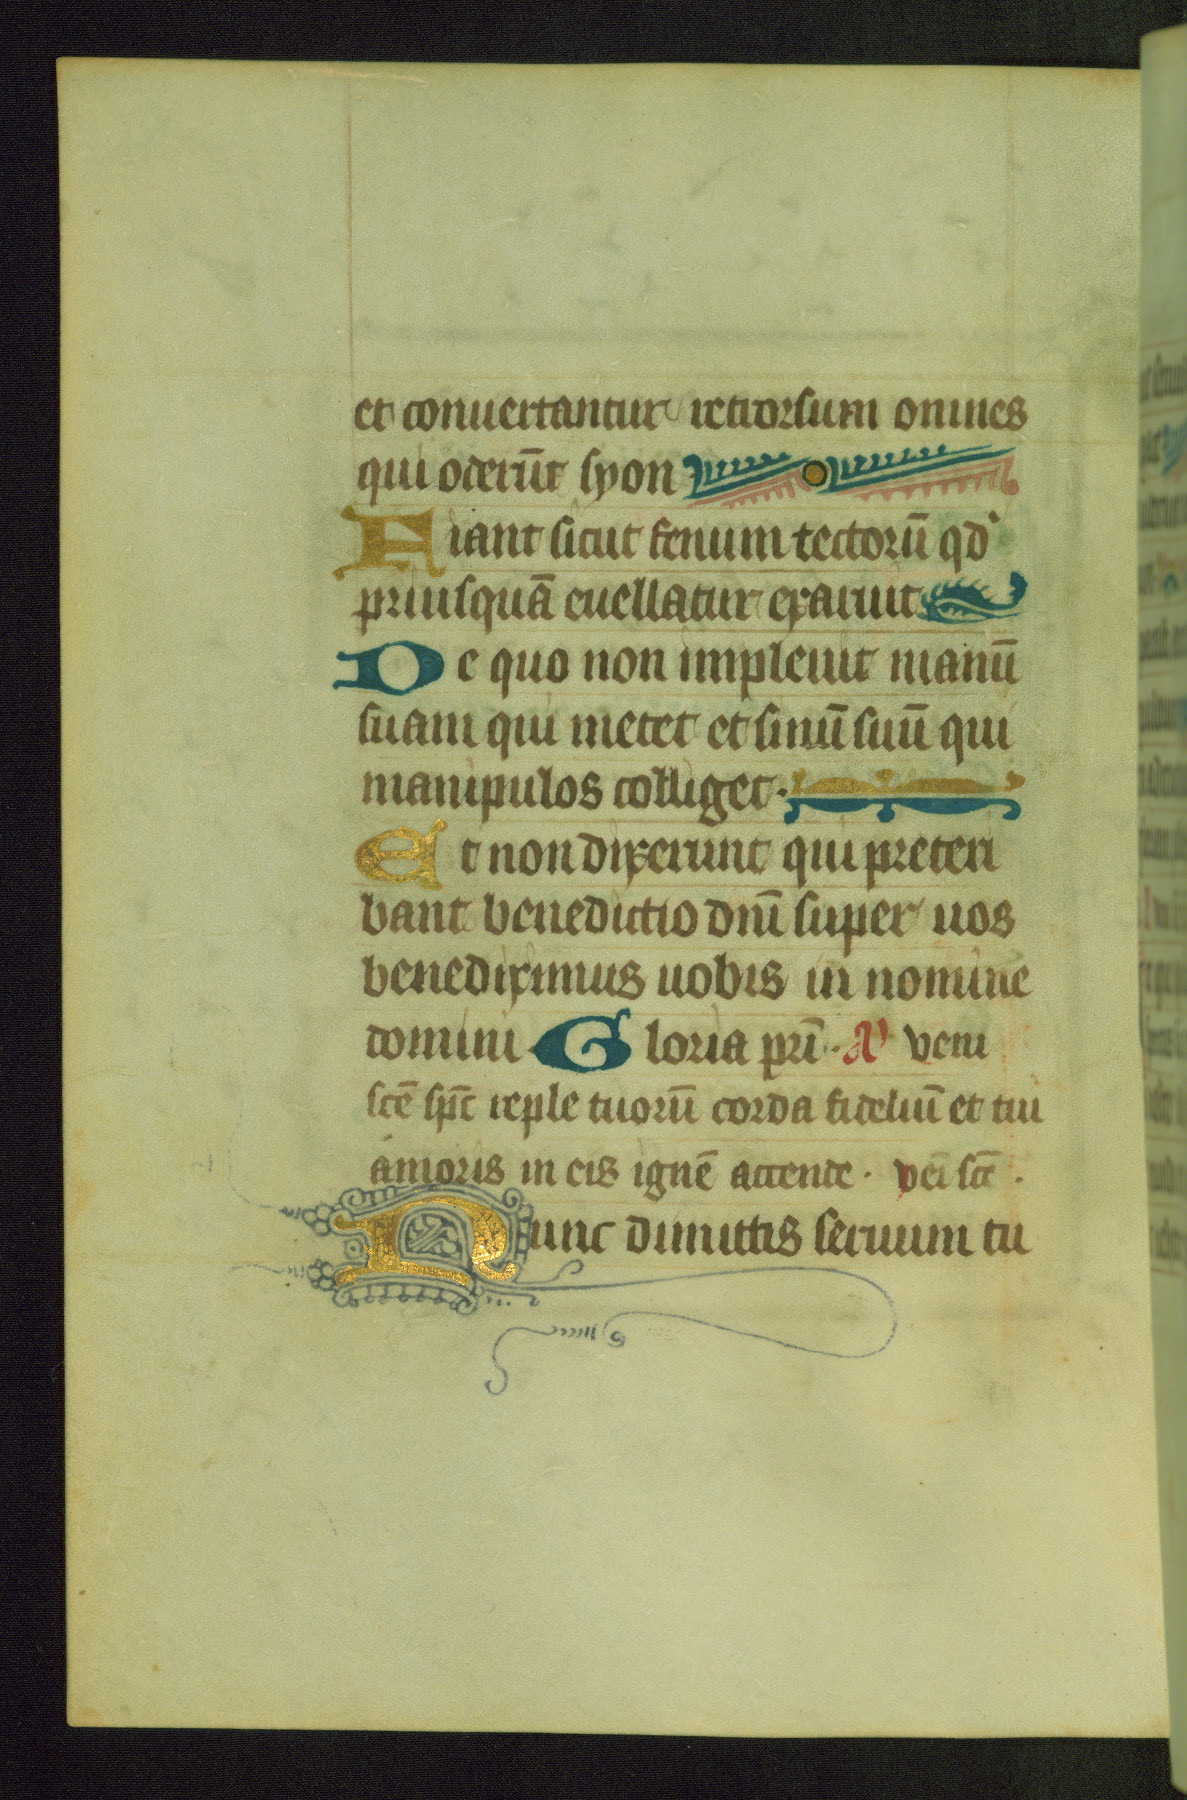 et conuertantur retrorsum omnes
qui oderūt syon
Fiant sicut fenum tectorū qd'
priusquā euellatur exaruit
De quo non impleuit manū
suam qui metet et sinū suū qui
manipulos colliget·
Et non dixerunt qui preteri
bant benedictio dnī super uos
benediximus uobis in nomine
domini Gloria prī· A veni
scē spc̄ reple tuorū corda fideliū et tui
amoris in eis ignē accende· vei scē·
Nunc dimittis seruum tu